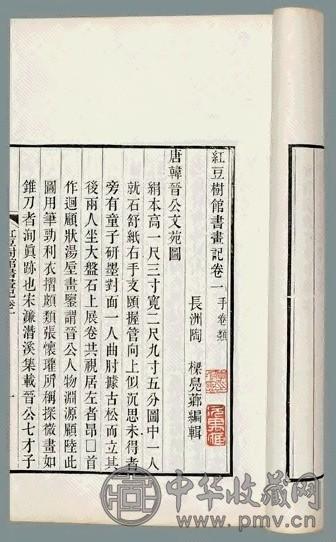 紅豆樹館書畫記卷一 手卷類
長洲陶 樑鳧薌編輯
唐韓晉公文苑圖
絹本高一尺三寸寬二尺九寸五分圖中一人
就石舒紙右手支頤握管向上似沉思未得者
旁有童子研墨對面一人曲肘據古松而立其
後兩人坐大盤石上展卷共視居左者昂□首
作迴顧狀湯垕畫鑒謂晉公人物淵源顧陸此
圖用筆勁利衣摺頗類張懷瓘所稱探微畫如
錐刀者洵眞跡也宋濂潛溪集載晉公七才子
紅豆樹館書畫記卷一
一
中华收藏网
www.pmv.cn